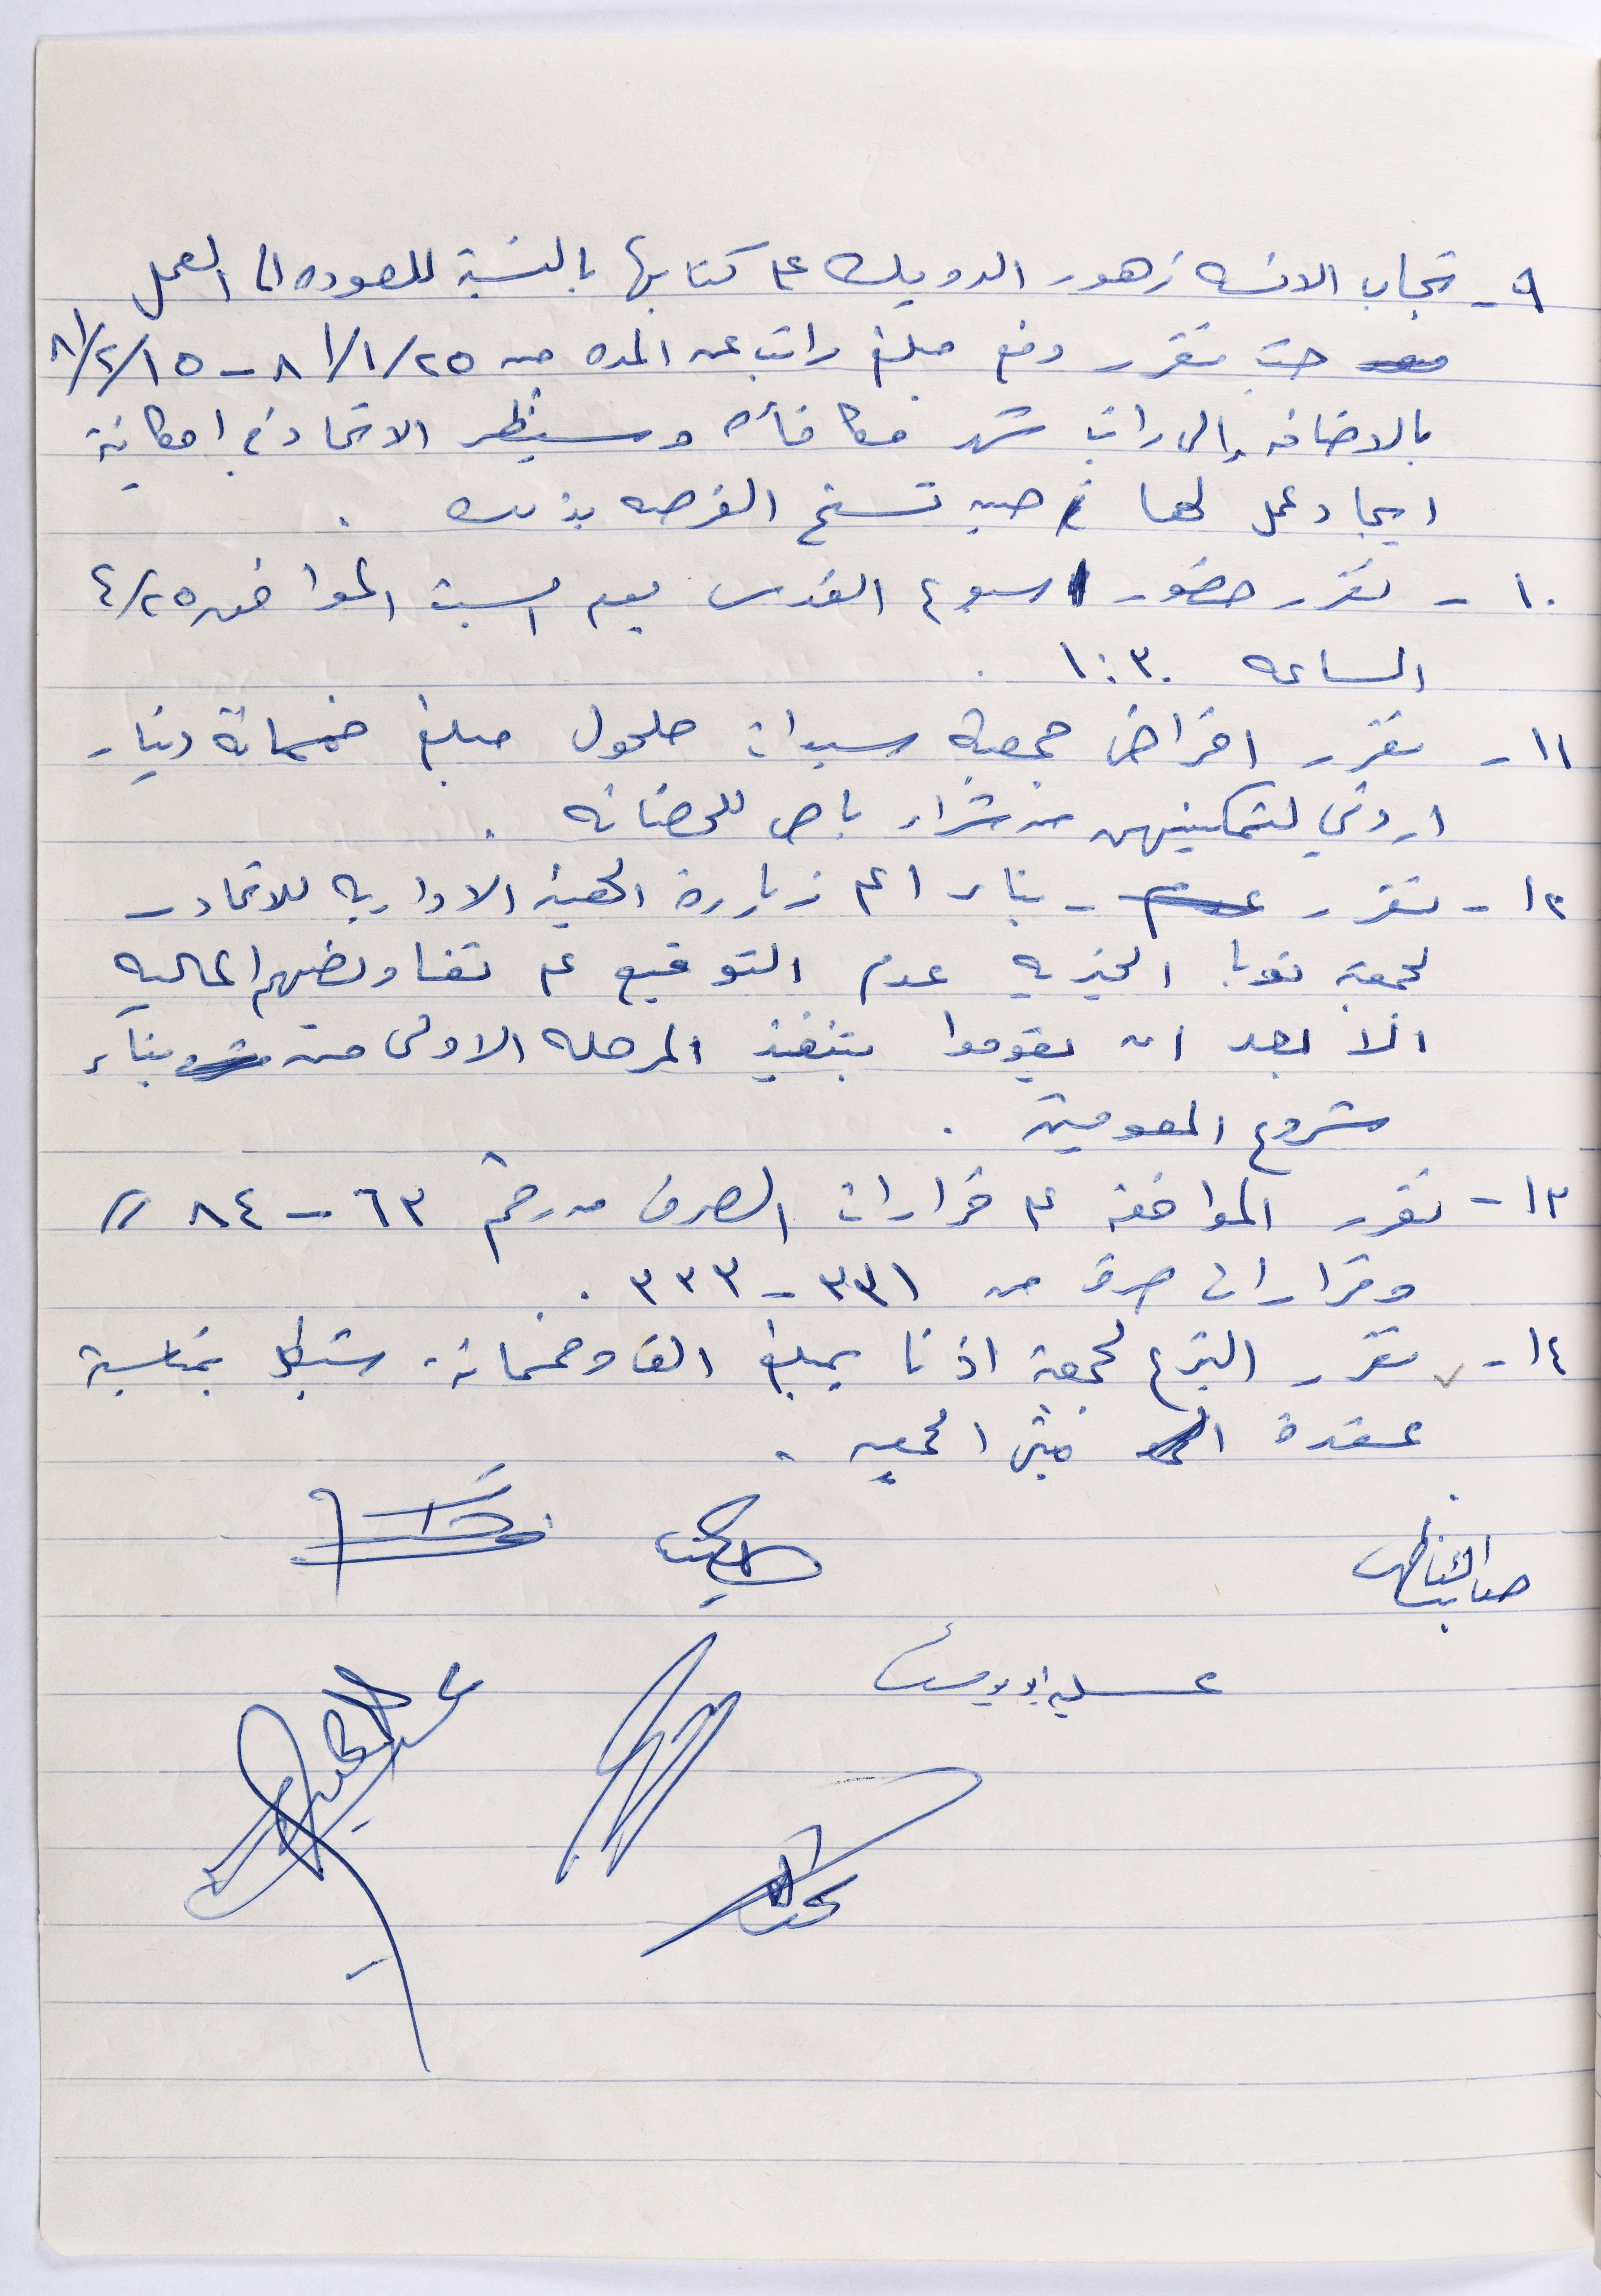 ٩- تجاب الانسه زهور الدويك على كتابها بالنسبة للعوده الى العمل
حيث تقرر دفع مبلغ راتب عن المده من ٨١/١/٢٥ - ٨١/٢/١٥
بالاضافه إلى راتب شهر مكافأه وسينظر الاتحاد في امكانية
ايجاد عمل لها حين تسنح الفرصه بذلك .
١٠- تقرر حضور اسبوع القدس يوم السبت الموافق ٤/٢٥
الساعه ١:٣٠ .
١١- تقرر اقراض جمعية سيدات حلحول مبلغ خمسمائة دينار
اردني لتمكينهن من شراء باص للحضانه .
١٢- تقرر - بناء على زيارة الهيئة الاداريه للاتحاد -
لجمعية نوبا الخيريه عدم التوقيع على تفاويضهم الماليه
الا بعد ان يقوموا بتنفيذ المرحله الاولى من بناء
مشروع العموميه .
١٣- تقرر الموافقه على قرارات الصرف من رقم ٦٣ - ٨٤ //
وقرارات صرف من ٣٣١ - ٣٣٣ .
١٤- تقرر التبرع لجمعية اذنا بمبلغ الف وخمسمائة شيكل بمناسبة
عقدة مبنى الجمعيه .